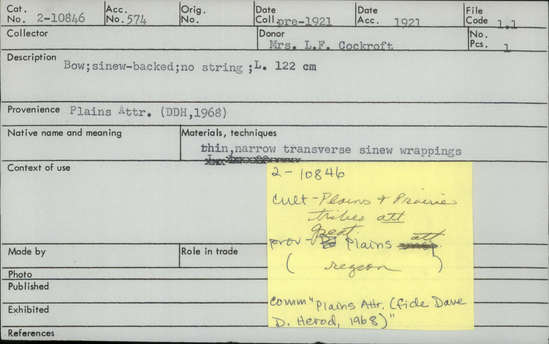 Cat. No. 2-10846 Acc. No. 574 Orig. No. Date Coll. pre-1921 Date Acc. 1921 File Code 1.1
Collector Donor Mrs. L.F. Cockroft No. Pcs. 1
Description Bow;sinew-backed;no string ;L. 122 cm
Provenience Plains Attr. (DDH,1968)
Native name and meaning Materials, techniques
thin,narrow transverse sinew wrappings
Context of use
2-10846
Cult-Plains & Prairie
tribes att
great
prov- Plains att
( region )
comm "Plains Attr. (fide Dave
D. Herod, 1968)"
Made by Role in trade
Photo
Published
Exhibited
References